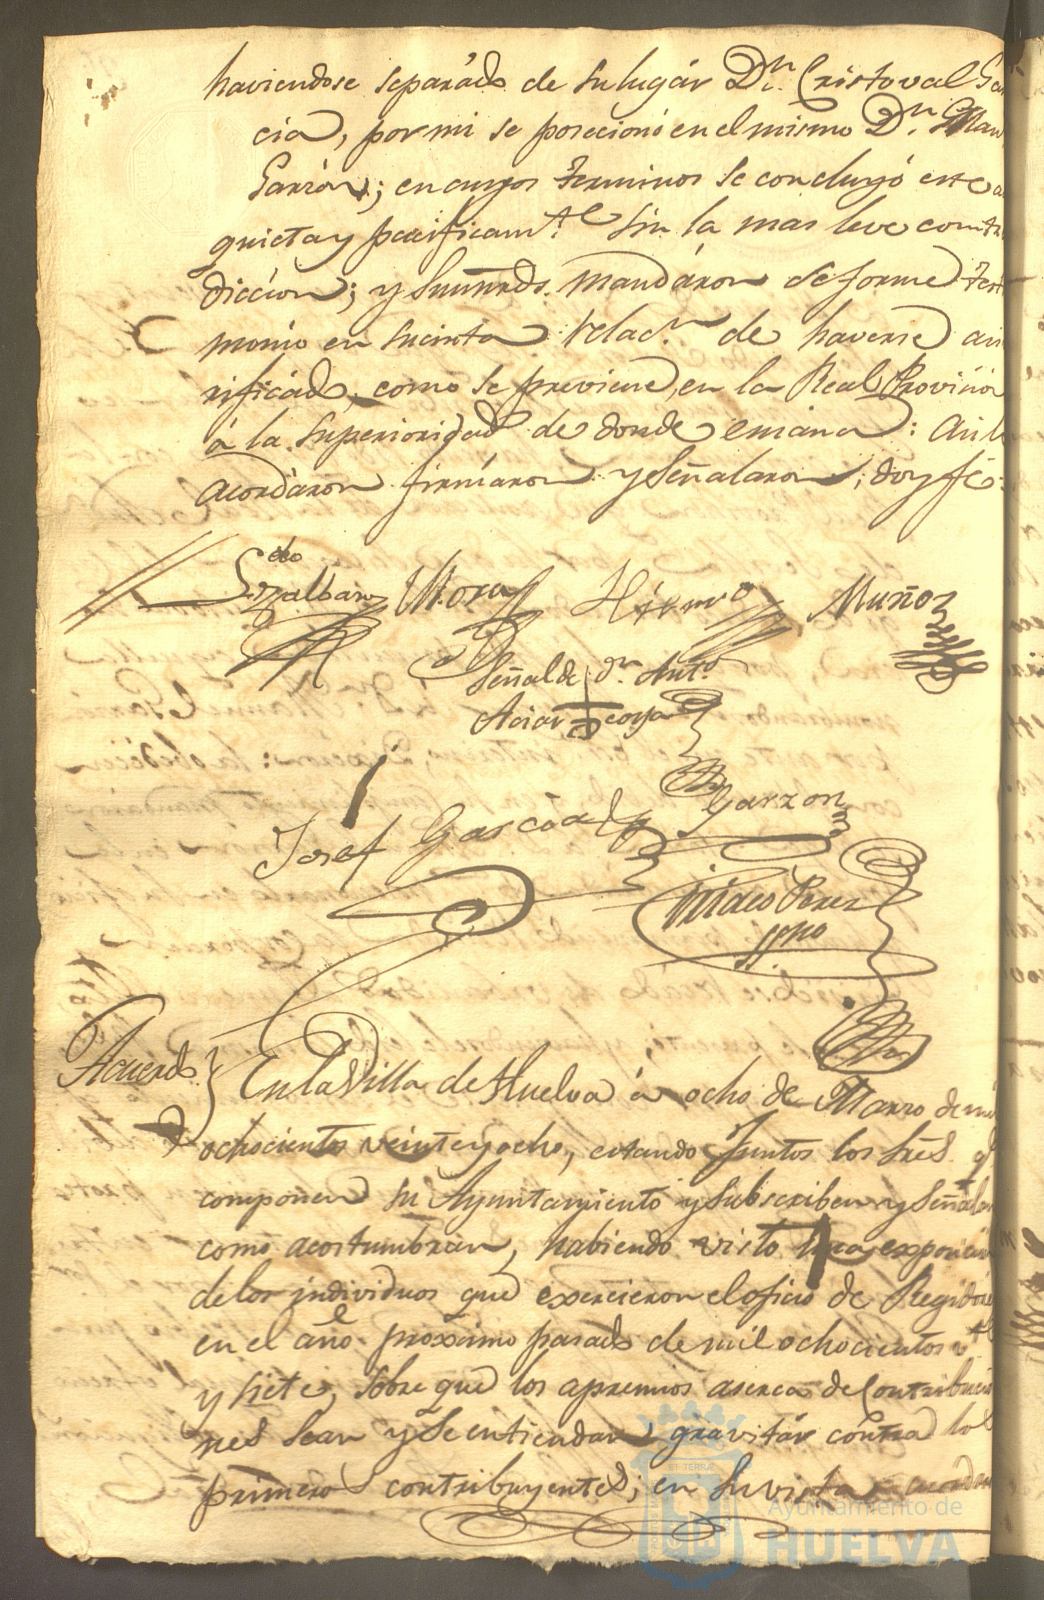 haviendose separádo de su lugár Dn. Cristoval Gar
cia, por mi se posecionó en el mismo Dn. Man
Garzón; en cuyos terminos se concluyó este a
quieta y pacificamte. sin la mas leve contra
diccion; y sus mrds. mandáron se forme testi
monio en sucinta relacn. de haverse asi
rificádo, como se previene, en la Real Provision
á la superioridad de donde emana: Asi lo
acordáron firmáron y señalaron, doy fé
Mora
Muñoz
Señal de dn. Anto.
Josef Garzon
Perez
Acuerdo } En la Villa de Huelva á ocho de Marzo de mil
ochocientos veinte y ocho, estando juntos los Sres. q
componen su Ayuntamiento y subscriben y señalan
como acostumbran, habiendo visto una exposicion
de los individuos que exercieron el oficio de Regidores
en el año proximo pasado de mil ochocientos vte
y siete, sobre que los apremios aserca de Contribucio
nes sean y se entiendan gravitár contra los
primeros contribuyentes; en su vista acordaron
Ayuntamiento de
HUELVA